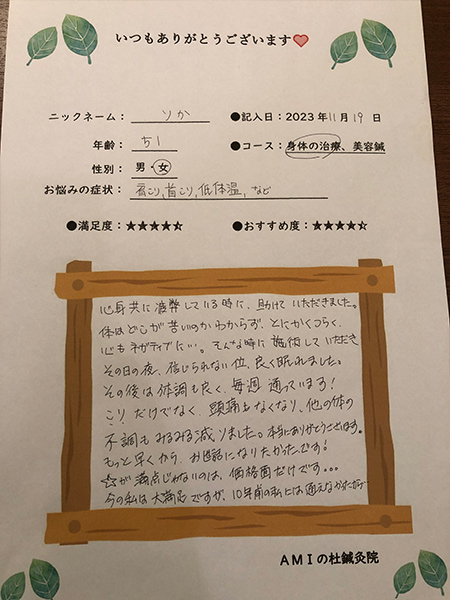 いつもありがとうございます❤
ニックネーム： りか ●記入日：2023年11月19日
年齢： 51 ●コース：身体の治療、美容鍼
性別： 男・女
お悩みの症状： 肩こり,首こり,低体温, など
●満足度：★★★★⯪ ●おすすめ度：★★★★⯪
心身共に疲弊している時に、助けていただきました。
体はどこが苦いのかわからず、とにかくつらく、
心もネガティブに…。そんな時に施術していただき
その日の夜、信じられない位、良く眠れました。
その後は体調も良く、毎週通っています！
こりだけでなく、頭痛もなくなり、他の体の
不調もみるみる減りました。本当にありがとうございます。
もっと早くからお世話になりたかったです！
☆が満点じゃないのは、価格面だけです...
今の私は大満足ですが、10年前の私には通えなかったかな…
AMIの杜鍼灸院